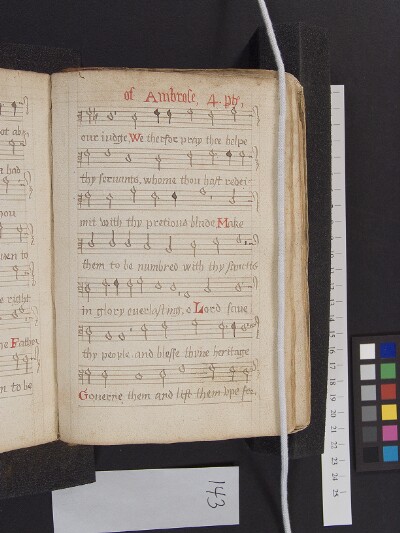 of Ambrose, 4. pts,
our iudge, We therfor pray thee helpe
thy servants, whome thou hast redei-
mit with thy pretious blude Make
them to be numbred with thy sanctts
in glory everlasting, o Lord save
thy people and blesse thyne heritage
Governe them and lift them upe for,
ot ab
n had
hou
ven to
e right
he Father
n to be
143
15 16 17 18 19 20 21 22 23 24 25